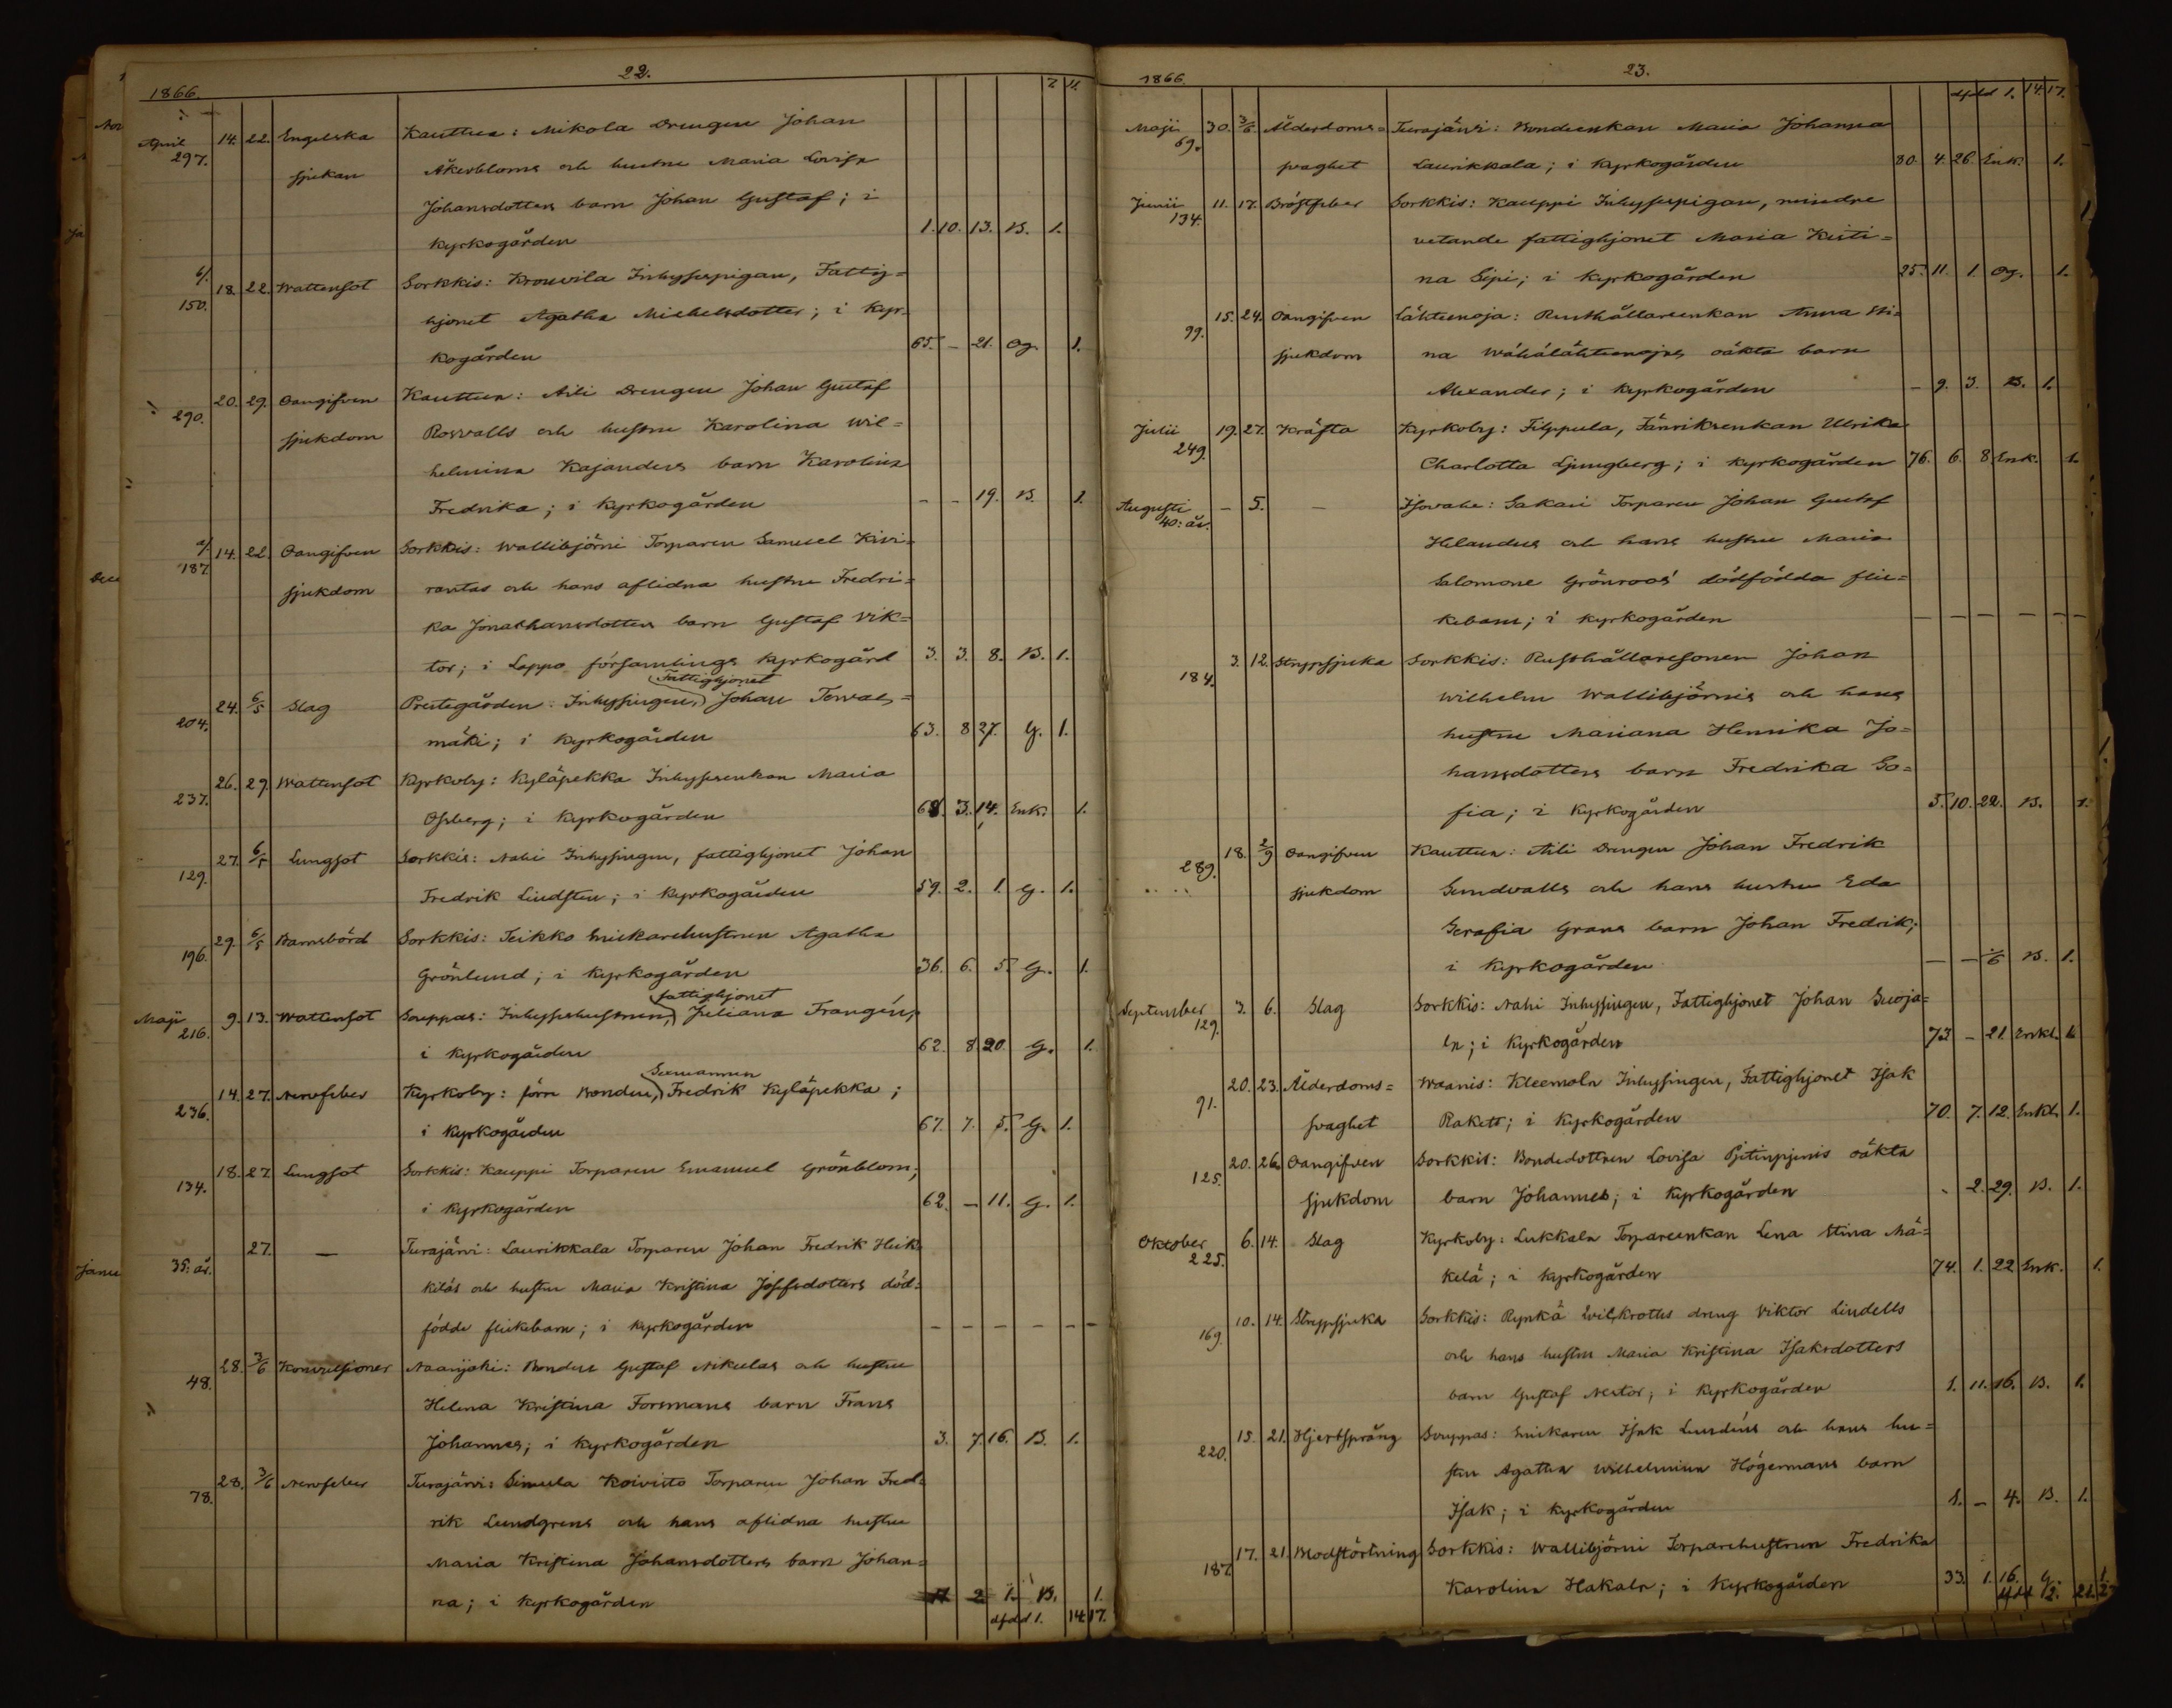 22.
1866. 7. 11.
April 14. 22. Engelska Kauttua: Mikola Drengen Johan
297. sjukan Åkerbloms och hustru Maria Lovisa
Johansdotters barn Johan Gustaf; i
kyrkogården 1. 10. 13. B. 1.
18. 22. Wattensot Sorkkis: Krouvila Inhysespigan, Fattig=
150. hjonet Agatha Michelsdotter; i kyr-
kogården 65. – 21. Og. 1.
20. 29. Oangifven Kauttua: Aili Drengen Johan Gustaf
290. sjukdom Rosvalls och hustru Karolina Wil=
helmina Kajanders barn Karolina
Fredrika; i kyrkogården – – 19. B. 1.
14. 22. Oangifven Sorkkis: Wallibjörni Torparen Samuel Kivi-
187. sjukdom rantas och hans aflidna hustru Fredri=
ka Jonathansdotters barn Gustaf Vik=
tor; i Lappo församlings kyrkogård 3. 3. 8. B. 1.
Fattighjonet
24. 6/5 Slag Prestegården: Inhysingen, Johan Tervas=
204. mäki; i kyrkogården 63. 8 27. G. 1.
26. 29. Wattensot Kyrkoby: Kyläpekka Inhysesenkan Maria
237. Osberg; i kyrkogården 68. 3. 14. Enk. 1.
27. 6/5 Lungsot Sorkkis: Nahi Inhysingen, fattighjonet Johan
129. Fredrik Lindsten; i kyrkogården 59. 2. 1. G. 1.
29. 6/5 Barnsbörd Sorkkis: Teikko Snickarehustrun Agatha
196. Grönlund; i kyrkogården 36. 6. 5. G. 1.
fattighjonet
Maji 9. 13. Wattensot Souppas: Inhyseshustrun, Juliana Frangén;
216. i kyrkogården 62. 8 20. G. 1.
14. 27. Nervfeber Kyrkoby: förra Bonden, Fredrik Kyläpekka;
236. i kyrkogården 67. 7. 5. G. 1.
18. 27. Lungsot Sorkkis: Kauppi Torparen Emanuel Grönblom;
134. i kyrkogården 62. – 11. G. 1.
27. – Turajärvi: Laurikkala Torparen Johan Fredrik Heik-
35. år. kiläs och hustru Maria Kristina Josefsdotters död-
födde flickebarn; i kyrkogården – – – – – –
28. 3/6 Konvulsioner Naarjoki: Bonden Gustaf Nikulas och hustru
48. Helena Kristina Forsmans barn Frans
Johannes; i kyrkogården 3. 7. 16. B. 1.
28. 3/6 Nervfeber Turajärvi: Simula Koivisto Torparen Johan Fred-
78. rik Lundgrens och hans aflidna hustru
Maria Kristina Johansdotters barn Johan=
na; i kyrkogården 2 1. B. 1.
dfdd 1. 14. 17.
23.
1866. dfdd 1. 14. 17.
Maji 30. 3/6. Ålderdoms= Turajärvi: Bondeenkan Maria Johanna
69. svaghet Laurikkala; i kyrkogården 80. 4. 26. Enk. 1.
Junii 11. 17. Bröstfeber Sorkkis: Kauppi Inhysespigan, mindre
134. vetande fattighjonet Maria Kristi=
na Sipi; i kyrkogården 25. 11. 1. Og. 1.
15. 24. Oangifven Lähteenoja: Rusthållareenkan Anna Sti=
99. sjukdom na Wähälähteenojas oäkta barn
Alexander; i kyrkogården – 9. 3. B. 1.
Julii 19. 27. Kräfta Kyrkoby: Filppula, Fänriksenkan Ulrika
249. Charlotta Ljungberg; i kyrkogården 76. 6. 8. Enk. 1.
Augusti – 5. – Isovahe: Sakari Torparen Johan Gustaf
40: år. Helanders och hans hustru Maria
Salomone Grönroos' dödfödda flic=
kebarn; i kyrkogården – – – – – –
3. 12. Strypsjuka Sorkkis: Rusthållaresonen Johan
184. Wilhelm Wallibjörnis och hans
hustru Mariana Henrika Jo=
hansdotters barn Fredrika So=
fia; i kyrkogården 5. 10. 22. B. 1.
18. 2/9 Oangifven Kauttua: Aili Drengen Johan Fredrik
289. sjukdom Sundvalls och hans hustru Eda
Serafia Grans barn Johan Fredrik;
i kyrkogården – – 6 B. 1.
September 3. 6. Slag Sorkkis: Nahi Inhysingen, Fattighjonet Johan Suoja=
129. la; i kyrkogården 73 – 21. Enkl. 1.
20. 23. Ålderdoms= Waanis: Kleemola Inhysingen, Fattighjonet Isak
91. svaghet Rakett; i kyrkogården 70. 7. 12. Enkl. 1.
20. 26. Oangifven Sorkkis: Bondedottren Lovisa oäkta
125. sjukdom barn Johannes; i kyrkogården 2. 29. B. 1.
Oktober 6. 14. Slag Kyrkoby: Lukkala Torpareenkan Lena Stina Mä=
225. kelä; i kyrkogården 74. 1. 22 Enk. 1.
10. 14. Strypsjuka Sorkkis: Rynkä drng Viktor Lindells
169. och hans hustru Maria Kristina Isaksdotters
barn Gustaf Nestor; i kyrkogården 1. 11. 16. B. 1.
15. 21. Hjertsprång Souppas: Snickaren Isak Lundéns och hans hu=
220. stru Agatha Wilhelmina Högermans barn
Isak; i kyrkogården 1. – 4. B. 1.
17. 21. Blodstörtning Sorkkis: Wallibjörni Torparehustrun Fredrika
187. Karolina Hakala; i kyrkogården 33. 1. 16. G. 1.
dfdd 2. 21.